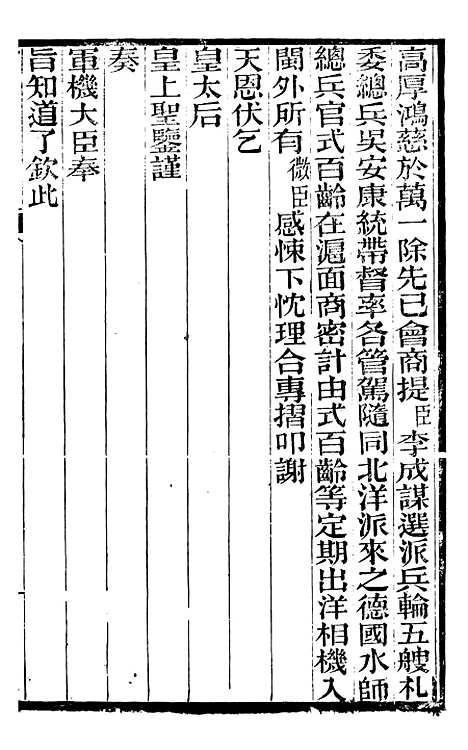 高厚鴻慈於萬一除先已會商提臣李成謀選派兵輪五艘札
委總兵吳安康統帶督率各管駕隨同北洋派來之德國水師
總兵官式百齡在滬面商密計由式百齡等定期出洋相機入
閩外所有微臣感悚下忱理合專摺叩謝
天恩伏乞
皇太后
皇上聖鑒謹
奏
軍機大臣奉
旨知道了欽此